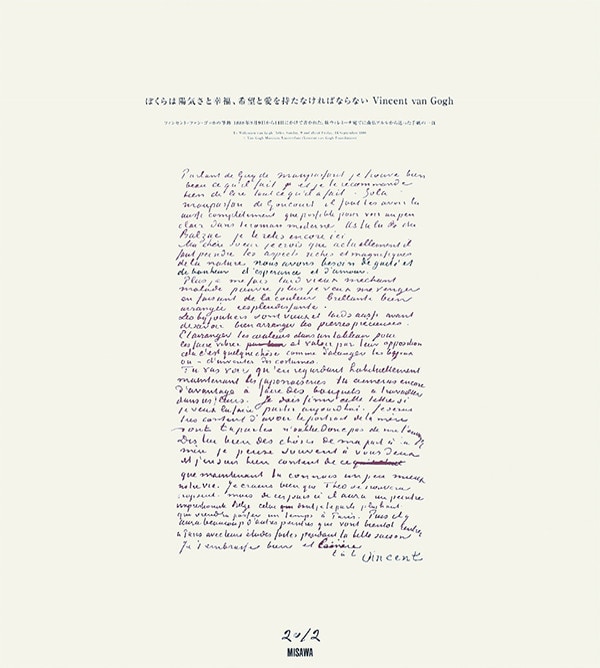 ぼくらは陽気さと幸福、希望と愛を持たなければならない Vincent van Gogh
Parlant de Guy de Maupassant je trouve bien
beau ce qu'il fait et je te recommande
bien de lire tout ce qu'il a fait. Zola
Maupassan de Goncourt il faut les avoir lu
aussi complètement que possible pour voir un peu
clair dans le roman moderne. As tu lu du
Balzac je le relis encore ici
Ma chère soeur je crois que actuellement il
faut peindre les aspects riches et magnifiques
de la nature nous avons besoin de gaité et
de bonheur d'espérance et d'amour.
Plus je me fais laid vieux méchant
malade pauvre plus je veux me venger
en faisant de la couleur brillante bien
arrangée resplendissante.
Les bijoutiers sont vieux et laids aussi avant
de savoir bien arranger les pierres précieuses.
Et arranger les couleurs dans un tableau pour
les faire vibrer et valoir par leur opposition
cela c'est quelque chose comme d'arranger les bijoux
ou – d'inventer des costumes.
Tu vas voir qu'en regardant habituellement
maintenant les japonaiseries tu aimeras encore
d'avantage à faire des bouquets à travailler
dans les fleurs. Je dois finir cette lettre si
je veux la faire partir aujourd'hui. Je serai
très content d'avoir le portrait de la mère
dont tu parles n'oublie donc pas de me l'env
Dis lui bien des choses de ma part à la
mère je pense souvent à vous deux
et j'en suis bien content de ce
que maintenant tu connais un peu mieux
notre vie. Je crains bien que Théo se trouvera
mais de ces jours ci il aura un peintre
impressioniste belge celui que dont je te parle plus haut
qui viendra passer un temps à Paris. Puis il y
aura beaucoup d'autres peintres qui vont bientôt rentrer
à Paris avec leurs études faites pendant la belle saison
Je t'embrasse bien et la mère
t. à t. Vincent
2012
MISAWA